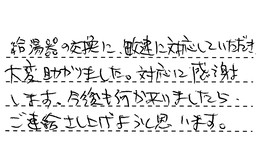 給湯器の交換に、敏速に対応していただき
大変助かりました。対応に感謝
します。今後も何か有りましたら
ご連絡さし上げようと思います。